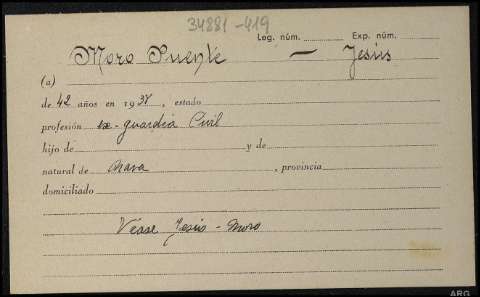 34881-419
Leg. núm. Exp. núm.
Moro Puente — Jesús
(a)
de 42 años en 1937, estado
profesión ex-guardia Civil
hijo de y de
natural de Nava, provincia
domiciliado
Véase Jesús - Moro
ARG